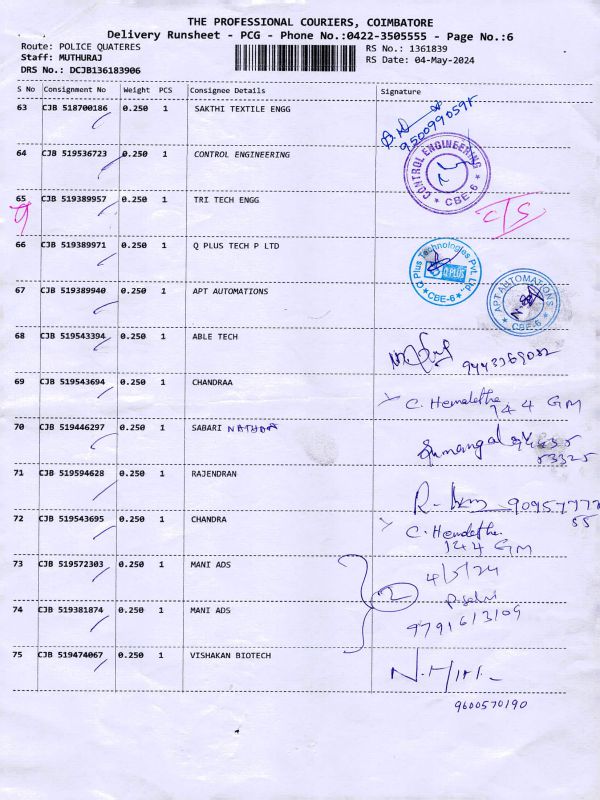 THE PROFESSIONAL COURIERS, COIMBATORE
Delivery Runsheet - PCG - Phone No.:0422-3505555 - Page No.:6
Route: POLICE QUATERES RS No.: 1361839
Staff: MUTHURAJ RS Date: 04-May-2024
DRS No.: DCJB136183906
S No Consignment No Weight PCS Consignee Details Signature
63 CJB 518700186 0.250 1 SAKTHI TEXTILE ENGG
9500990595
64 CJB 519536723 0.250 1 CONTROL ENGINEERING
CONTROL ENGINEERING
★ CBE-6 ★
65 CJB 519389957 0.250 1 TRI TECH ENGG
C/S
66 CJB 519389971 0.250 1 Q PLUS TECH P LTD
Q Plus Technologies Pvt. Ltd.
Q PLUS
★ CBE-6 ★
67 CJB 519389940 0.250 1 APT AUTOMATIONS
APT AUTOMATIONS
★ CBE-6 ★
68 CJB 519543394 0.250 1 ABLE TECH
9443369082
69 CJB 519543694 0.250 1 CHANDRAA
C. Hemalatha
144 GM
70 CJB 519446297 0.250 1 SABARI NATHAN
Sumangal 94435
53325
71 CJB 519594628 0.250 1 RAJENDRAN
72 CJB 519543695 0.250 1 CHANDRA
C. Hemalatha
144 GM
73 CJB 519572303 0.250 1 MANI ADS
4/5/24
2
74 CJB 519381874 0.250 1 MANI ADS
9791613109
75 CJB 519474067 0.250 1 VISHAKAN BIOTECH
9600570190